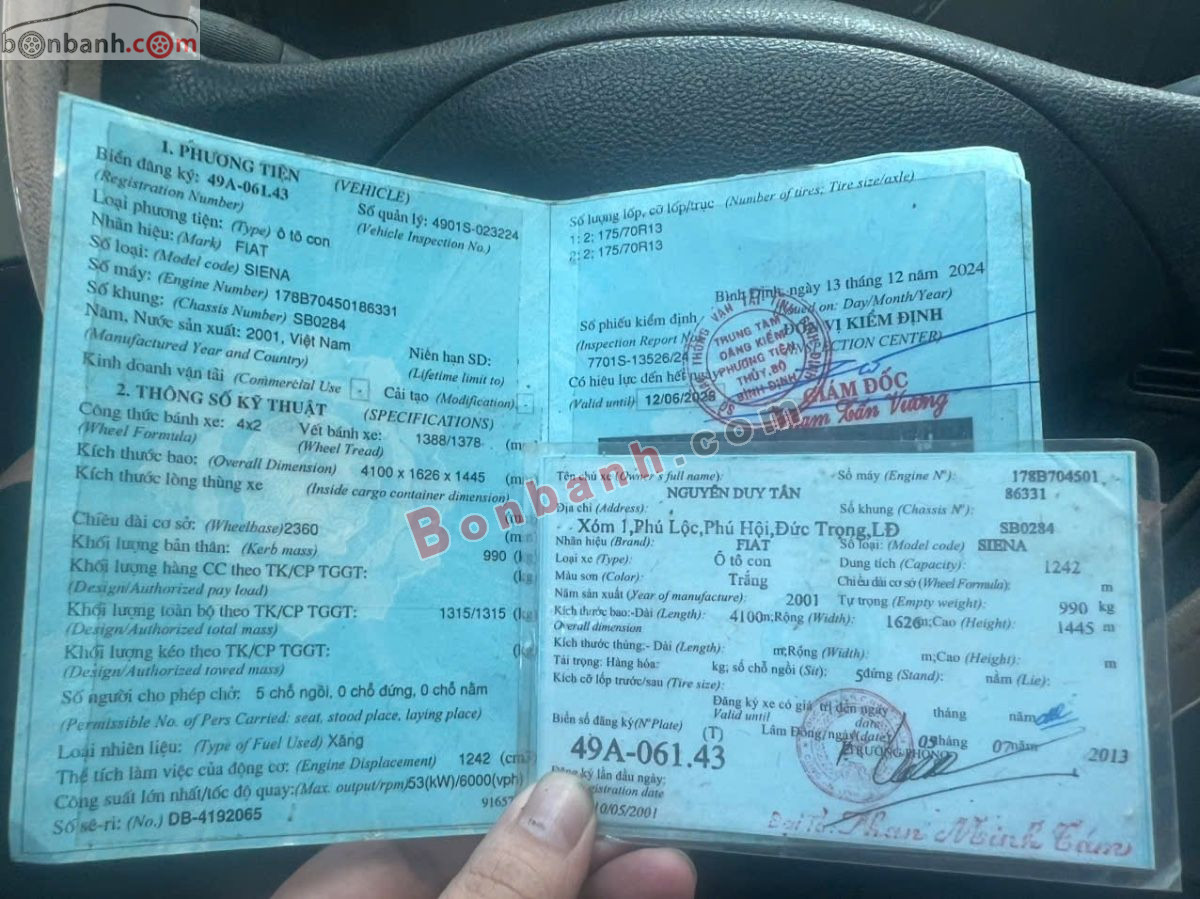 bonbanh.com
1. PHƯƠNG TIỆN (VEHICLE)
Biển đăng ký: 49A-061.43
(Registration Number)
Số quản lý: 4901S-023224
(Vehicle Inspection No.)
Loại phương tiện: (Type) ô tô con
Nhãn hiệu: (Mark) FIAT
Số loại: (Model code) SIENA
Số máy: (Engine Number) 178B70450186331
Số khung: (Chassis Number) SB0284
Năm, Nước sản xuất: 2001, Việt Nam
(Manufactured Year and Country)
Niên hạn SD:
(Lifetime limit to)
Kinh doanh vận tải (Commercial Use - Cải tạo (Modification) -
2. THÔNG SỐ KỸ THUẬT (SPECIFICATIONS)
Công thức bánh xe: 4x2
(Wheel Formula)
Vết bánh xe: 1388/1378 (m
(Wheel Tread)
Kích thước bao: (Overall Dimension) 4100 x 1626 x 1445 (m
Kích thước lòng thùng xe (Inside cargo container dimension)
(m
Chiều dài cơ sở: (Wheelbase) 2360 (m
Khối lượng bản thân: (Kerb mass) 990 (k
Khối lượng hàng CC theo TK/CP TGGT: (kg
(Design/Authorized pay load)
Khối lượng toàn bộ theo TK/CP TGGT: 1315/1315 (kg
(Design/Authorized total mass)
Khối lượng kéo theo TK/CP TGGT: (k
(Design/Authorized towed mass)
Số người cho phép chở: 5 chỗ ngồi, 0 chỗ đứng, 0 chỗ nằm
(Permissible No. of Pers Carried: seat, stood place, laying place)
Loại nhiên liệu: (Type of Fuel Used) Xăng
Thể tích làm việc của động cơ: (Engine Displacement) 1242 (cm
Công suất lớn nhất/tốc độ quay: (Max. output/rpm) 53(kW)/6000(vph)
9165
Số sê-ri: (No.) DB-4192065
Số lượng lốp, cỡ lốp/trục (Number of tires; Tire size/axle)
1: 2; 175/70R13
2: 2; 175/70R13
Bình Định, ngày 13 tháng 12 năm 2024
(Issued on: Day/Month/Year)
Số phiếu kiểm định ĐƠN VỊ KIỂM ĐỊNH
(Inspection Report N INSPECTION CENTER)
7701S-13526/24
Có hiệu lực đến hết ngày
(Valid until) 12/06/2025
TRUNG TÂM
ĐĂNG KIỂM
PHƯƠNG TIỆN
THỦY, BỘ
BÌNH ĐỊNH
GIÁM ĐỐC
Tấn Vương
Bonbanh.com
Tên chủ xe (Owner's full name):
NGUYỄN DUY TÂN
Số máy (Engine Nº): 178B704501
86331
Địa chỉ (Address):
Xóm 1,Phú Lộc,Phú Hội,Đức Trọng,LĐ
Số khung (Chassis Nº):
SB0284
Nhãn hiệu (Brand): FIAT
Số loại: (Model code) SIENA
Loại xe (Type): Ô tô con
Dung tích (Capacity): 1242
Màu sơn (Color): Trắng
Chiều dài cơ sở (Wheel Formula): m
Năm sản xuất (Year of manufacture): 2001
Tự trọng (Empty weight): 990 kg
Kích thước bao-Dài (Length): 4100m;Rộng (Width): 1626m;Cao (Height): 1445 m
Overall dimension
Kích thước thùng:- Dài (Length): m;Rộng (Width): m;Cao (Height): m
Tải trọng: Hàng hóa: kg; số chỗ ngồi (Sit): 5 đứng (Stand): nằm (Lie):
Kích cỡ lốp trước/sau (Tire size):
Đăng ký xe có giá trị đến ngày tháng năm
Valid until date:
Biển số đăng ký (NºPlate) (T)
49A-061.43
Lâm Đồng,ngày(date) 05 tháng 07 năm 2013
TRƯỞNG PHÒNG
Đăng ký lần đầu ngày:
registration date
10/05/2001
Đại Tá. Phan Minh Tám